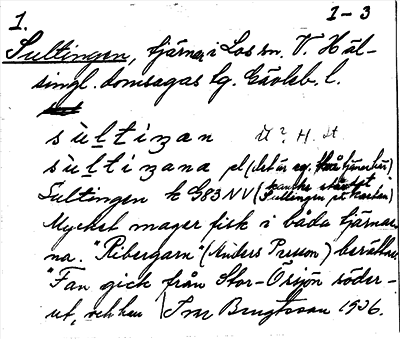 1. 1-3
Sultingen, tjärnar i Los sn. V. Häl-
singl. domsagas tg. Gävleb. l.
sùltiʒan
sùltiʒana pl (det är eg. två tjärnar)
Sultingen k G83NV (kanske
Sultingen på kartan)
Mycket mager fisk i båda tjärnar-
na. "Ribergarn" (Anders Persson) berättar:
"Fan gick från Stor-Örsjön söder-
ut, och han / Ivar Bengtsson 1936.